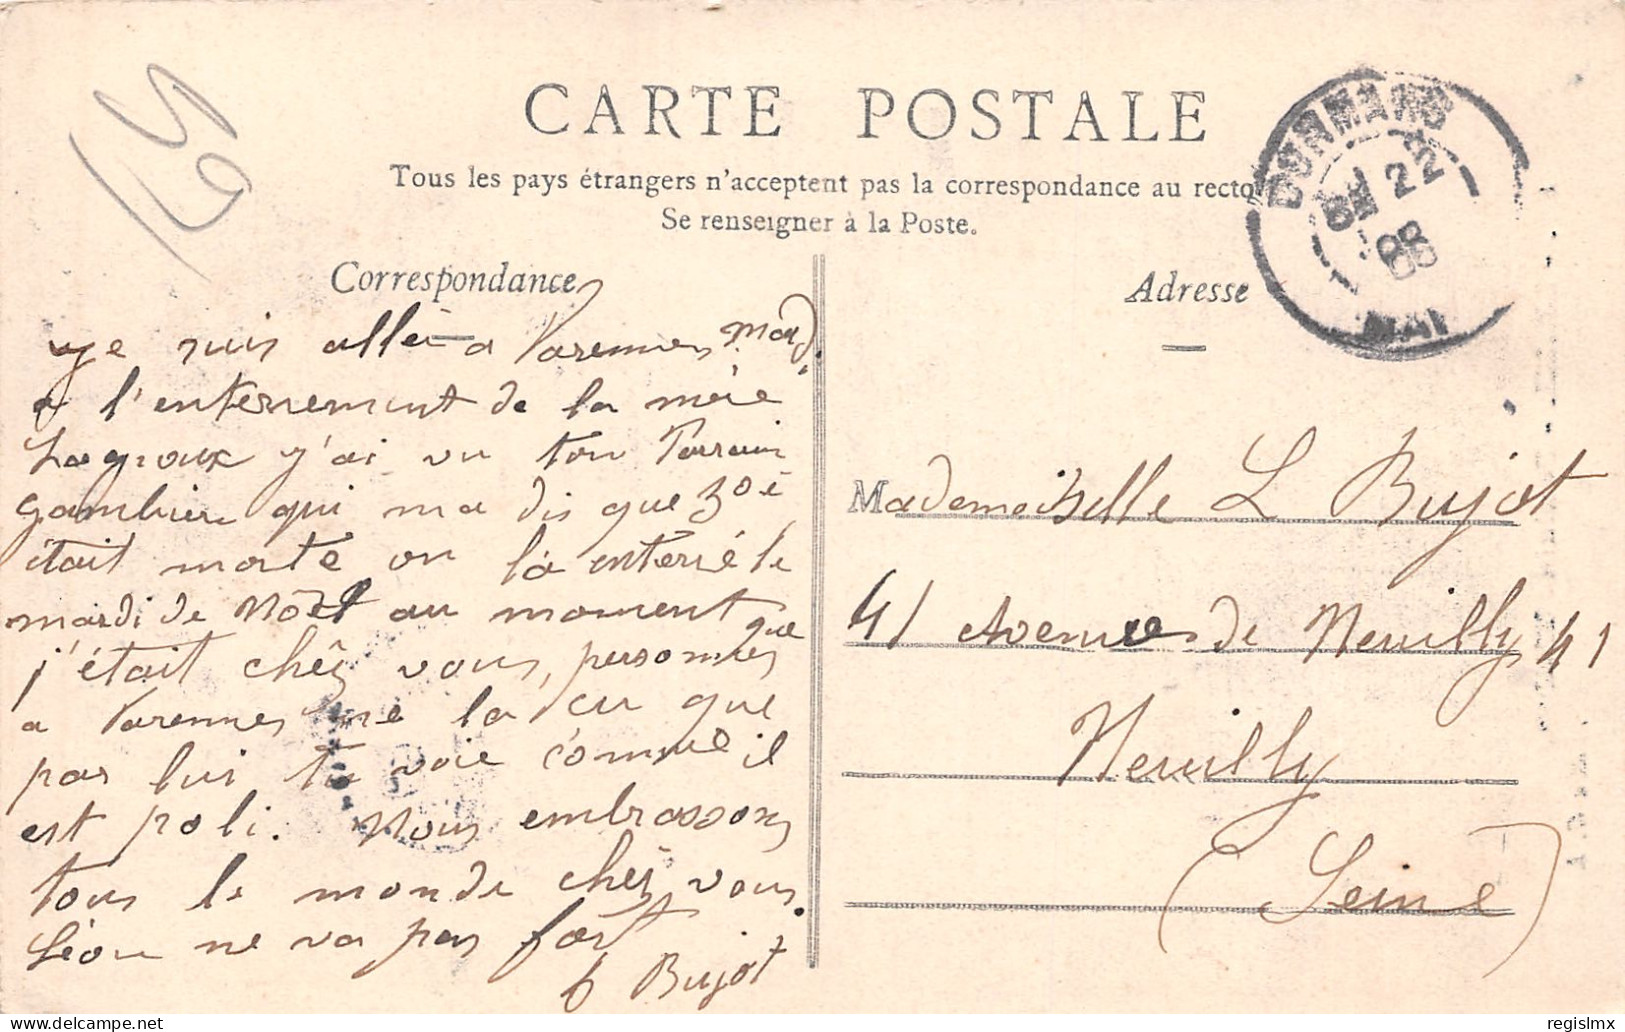 CARTE POSTALE
Tous les pays étrangers n'acceptent pas la correspondance au recto
Se renseigner à la Poste.
Correspondance
je suis allée a Varennes Mard.
a l'enterrement de la mère
Lagroux j'ai vu ton Parrain
gambier qui ma dis que Zoé
était morte on la enterré le
mardi de Nöel au moment que
j'était chêz vous, personnes
a Varennes ne la cu que
par lui tu voie comme il
est poli. Nous embrassons
tous le monde chêz vous.
Léon ne va pas fort
Bujot
Adresse
Mademoiselle L Bujot
41 Avenues de Neuilly 41
Neuilly
(Seine)
DORMANS
22
08
MAR
59
regislmx
delcampe.net